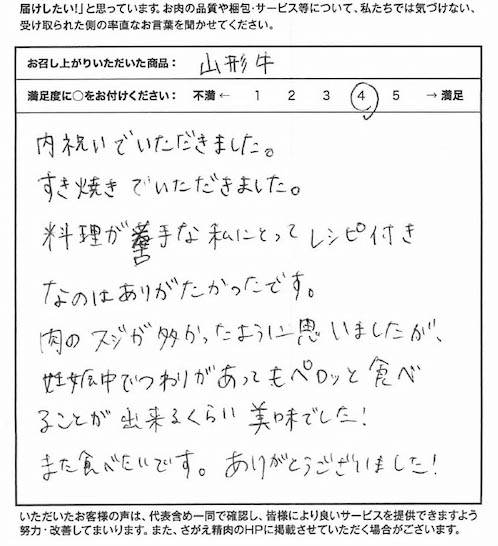 届けしたい!」と思っています。お肉の品質や梱包・サービス等について、私たちでは気づけない、
受け取られた側の率直なお言葉を聞かせてください。
お召し上がりいただいた商品: 山形牛
満足度に○をお付けください: 不満 ← 1 2 3 4 5 → 満足
内祝いでいただきました。
すき焼きでいただきました。
料理が苦手な私にとってレシピ付き
なのはありがたかったです。
肉のスジが多かったように思いましたが、
妊娠中でつわりがあってもペロッと食べ
ることが出来るくらい美味でした!
また食べたいです。ありがとうございました!
いただいたお客様の声は、代表含め一同で確認し、皆様により良いサービスを提供できますよう
努力・改善してまいります。また、さがえ精肉のHPに掲載させていただく場合がございます。